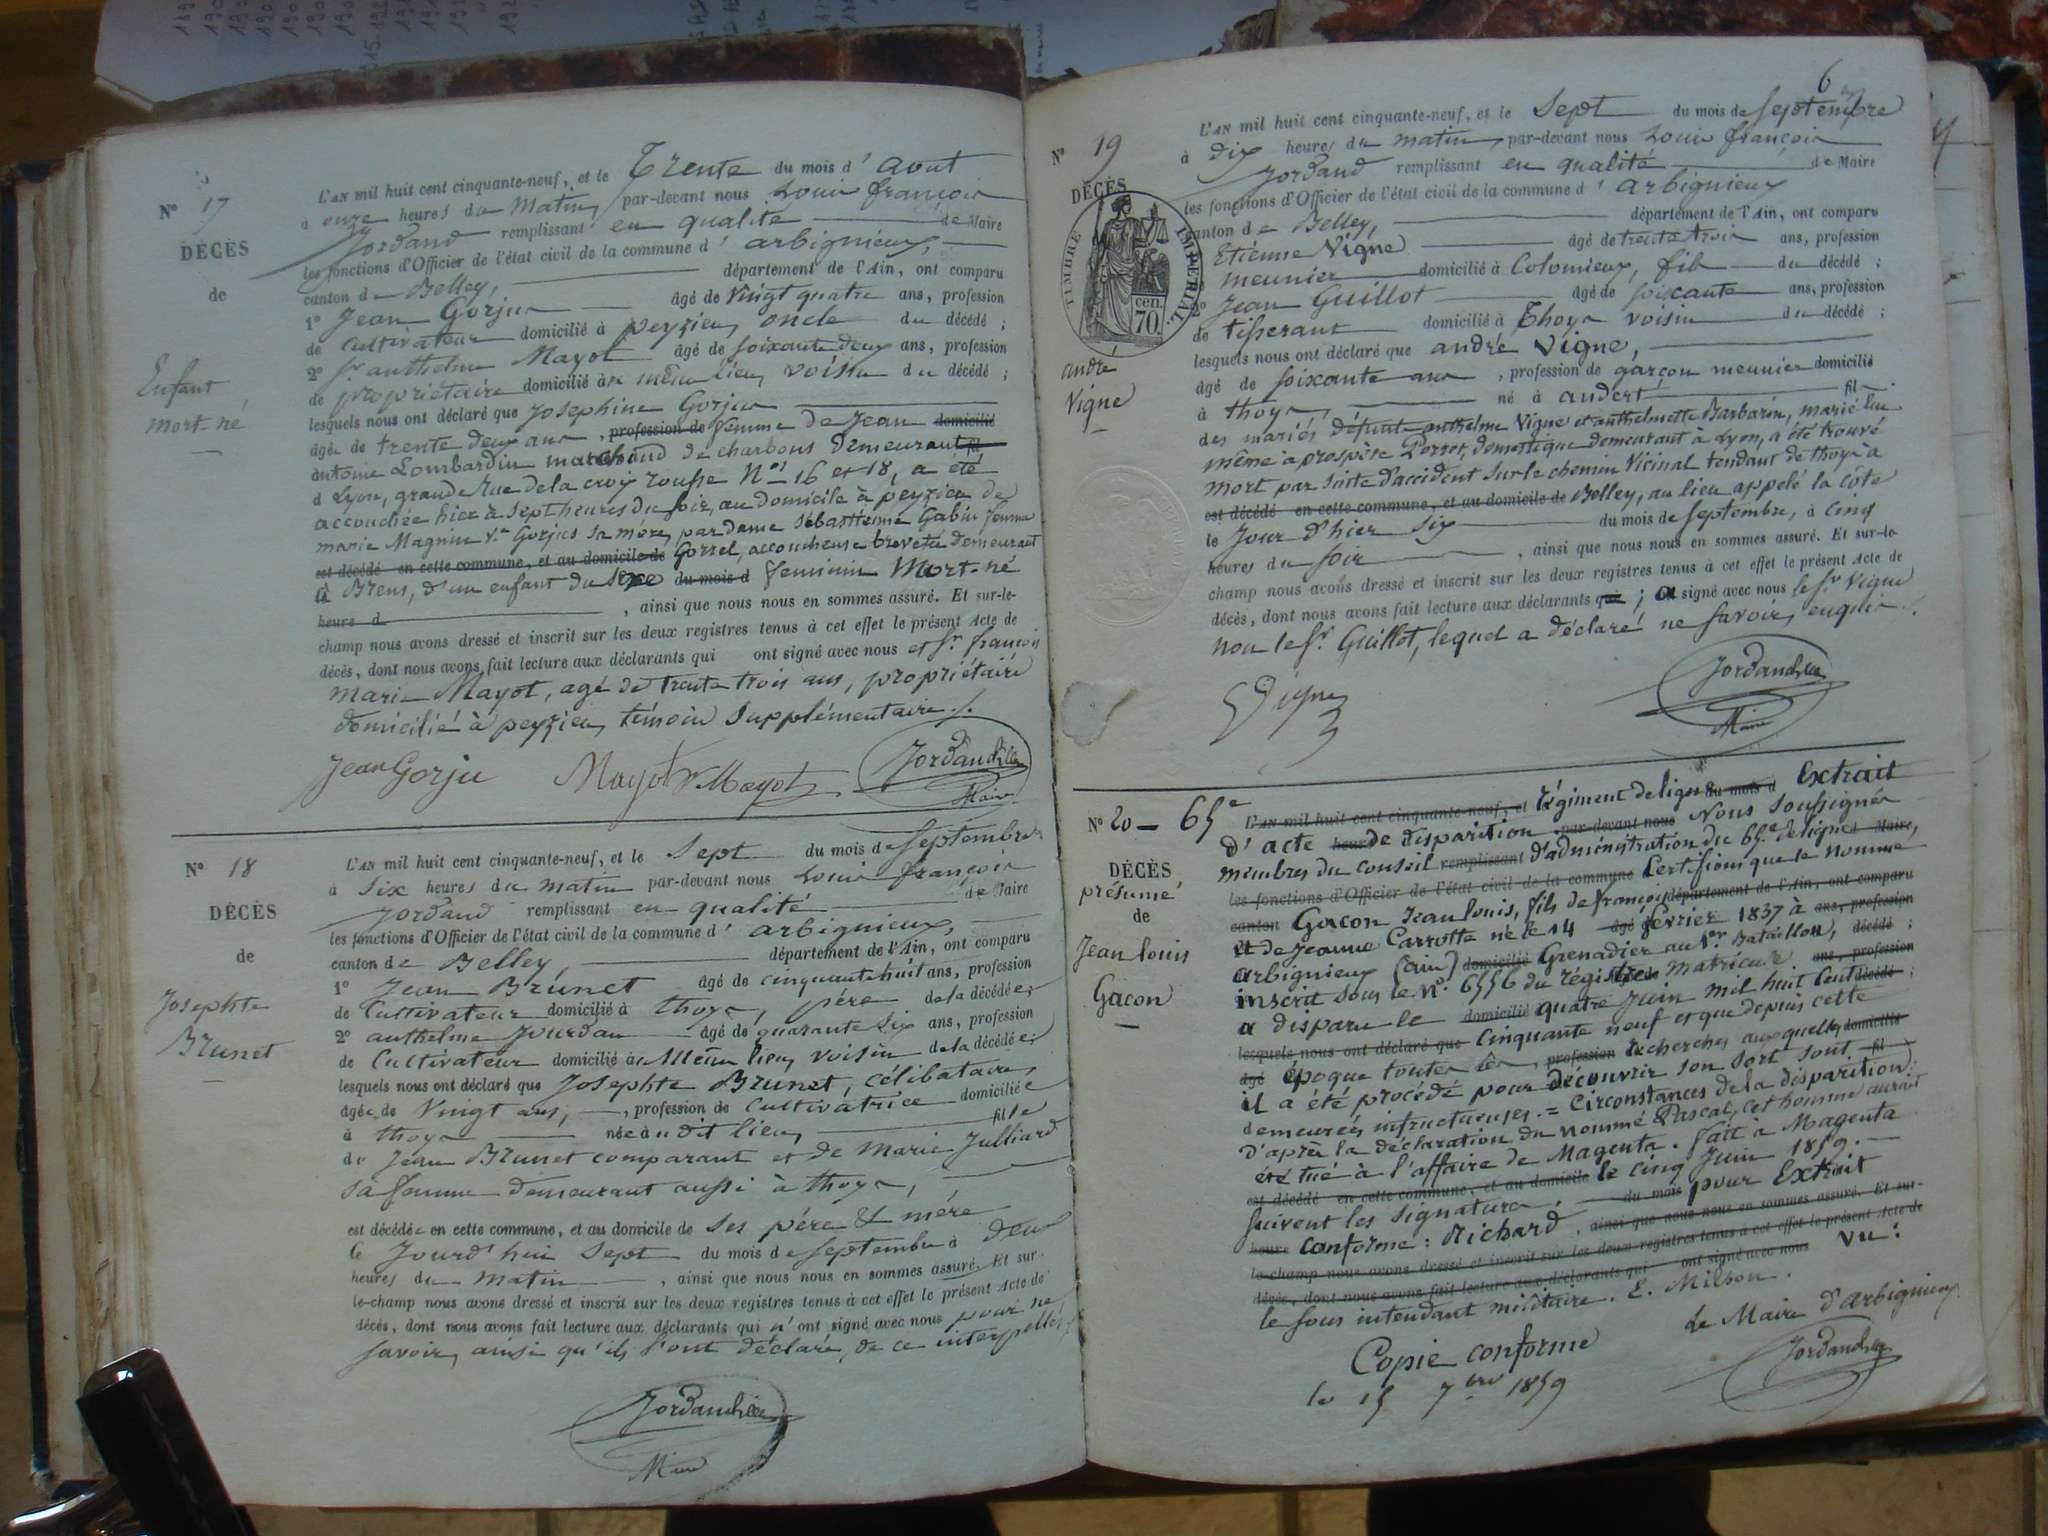 N° 17
DÉCÈS
de
Enfant
mort né
L'AN mil huit cent cinquante-neuf, et le Trente du mois d'aout
à onze heures du Matin, par-devant nous Louis françois
Jordand remplissant en qualité de Maire
les fonctions d'Officier de l'état civil de la commune d'arbignieux,
canton de Belley, département de l'Ain, ont comparu
1° Jean Gorjus âgé de vingt quatre ans, profession
de cultivateur domicilié à peyzieu, oncle du décédé ;
2° sr anthelme Mayot âgé de soixante deux ans, profession
de propriétaire domicilié au même lieu, voisin du décédé ;
lesquels nous ont déclaré que Josephine Gorjus
âgée de trente deux ans, profession de femme de Jean domicilié
antoine Lombardin marchand de charbons demeurant
à Lyon, grande Rue de la croix rousse Nos 16 et 18, a été
accouchée hier à sept heures du soir, au domicile à peyzieu de
marie Magnin Ve Gorjus sa mère, par dame sébastienne Gabin femme
est décédé en cette commune, et au domicile de Gorrel, accoucheuse brevetée demeurant
à Brens, d'un enfant du sexe du mois d feminin Mort-né
heure d , ainsi que nous nous en sommes assuré. Et sur-le-
champ nous avons dressé et inscrit sur les deux registres tenus à cet effet le présent Acte de
décès, dont nous avons fait lecture aux déclarants qui ont signé avec nous et sr françois
marie Mayot, agé de trente trois ans, propriétaire
domicilié à peyzieu, témoin supplémentaire ./.
Jean Gorju Mayot Mayot Jordand
Maire
N° 18
DÉCÈS
de
Josephte
Brunet
L'AN mil huit cent cinquante-neuf, et le sept du mois de septembre
à six heures du matin par-devant nous Louis françois
Jordand remplissant en qualité de Maire
les fonctions d'Officier de l'état civil de la commune d'arbignieux,
canton de Belley, département de l'Ain, ont comparu
1° Jean Brunet âgé de cinquante huit ans, profession
de Cultivateur domicilié à thoys, père de la décédée ;
2° anthelme Jourdan âgé de quarante six ans, profession
de Cultivateur domicilié au Même lieu, voisin de la décédée ;
lesquels nous ont déclaré que Josephte Brunet, célibataire,
âgée de Vingt ans, profession de cultivatrice domiciliée
à thoys née au dit lieu, fille
de Jean Brunet comparant et de Marie Julliard
sa femme demeurant aussi à thoys,
est décédée en cette commune, et au domicile de ses père & mère
le Jourd'hui sept du mois de septembre à deux
heures du matin , ainsi que nous nous en sommes assuré. Et sur-
le-champ nous avons dressé et inscrit sur les deux registres tenus à cet effet le présent Acte de
décès, dont nous avons fait lecture aux déclarants qui n'ont signé avec nous pour ne
savoir, ainsi qu'ils l'ont déclaré, de ce interpellés ./.
Jordand
Maire
6
N° 19
DÉCÈS
TIMBRE IMPÉRIAL
cen.
70
andré
Vigne
L'AN mil huit cent cinquante-neuf, et le sept du mois de septembre
à dix heures du matin, par-devant nous Louis françois
Jordand remplissant en qualité de Maire
les fonctions d'Officier de l'état civil de la commune d'arbignieux
canton de Belley, département de l'Ain, ont comparu
Etienne Vigne âgé de trente trois ans, profession
meunier domicilié à Colomieux, fils du décédé ;
Jean Guillot âgé de soixante ans, profession
de tisserant domicilié à Thoys voisin du décédé ;
lesquels nous ont déclaré que andré Vigne,
âgé de soixante ans, profession de garçon meunier domicilié
à thoys, né à andert fils
des mariés défunts anthelme Vigne et anthelmette Barbarin, marié lui
même à prospère Perret, domestique demeurant à Lyon, a été trouvé
mort par suite d'accident sur le chemin Vicinal tendant de thoys à
est décédé en cette commune, et au domicile de Belley, au lieu appelé la côte
le Jour d'hier six du mois de septembre, à cinq
heures du soir , ainsi que nous nous en sommes assuré. Et sur-le-
champ nous avons dressé et inscrit sur les deux registres tenus à cet effet le présent Acte de
décès, dont nous avons fait lecture aux déclarants qui ; a signé avec nous le sr Vigne
non le sr Guillot, lequel a déclaré ne savoir, enquis ./.
Vigne
Jordand
Maire
N° 20 — 65e
DÉCÈS
présumé
de
Jean louis
Gacon
L'AN mil huit cent cinquante-neuf, et régiment de ligne du mois d Extrait
d'acte heure de disparition par-devant nous Nous soussignés
membres du conseil remplissant d'administration du 65e de ligne Maire,
les fonctions d'Officier de l'état civil de la commune Certifions que le nommé
canton Gacon Jean louis, fils de françois département de l'Ain, ont comparu
et de Jeanne Carrotte né le 14 âgé février 1837 à ans, profession
arbignieux (ain) domicilié Grenadier au 1er Bataillon, décédé ;
inscrit sous le n° 6556 du registre matricule ans, profession
a disparu le domicilié quatre Juin mil huit Cent décédé ;
lesquels nous ont déclaré que cinquante neuf et que depuis cette
âgé époque toutes les profession recherches auxquelles domicilié
il a été procédé pour découvrir son sort sont fil
demeurées infructueuses. = Circonstances de la disparition :
d'après la déclaration du nommé Pascal, cet homme aurait
été tué à l'affaire de Magenta. fait à Magenta
est décédé en cette commune, et au domicile le cinq Juin 1859.
suivent les signatures du mois pour Extrait
heure conforme : Richard , ainsi que nous nous en sommes assuré. Et sur-
le-champ nous avons dressé et inscrit sur les deux registres tenus à cet effet le présent Acte de
décès, dont nous avons fait lecture aux déclarants qui ont signé avec nous vu :
le sous intendant militaire. E. Milson.
Copie conforme Le Maire d'arbignieux
le 15 7bre 1859 Jordand